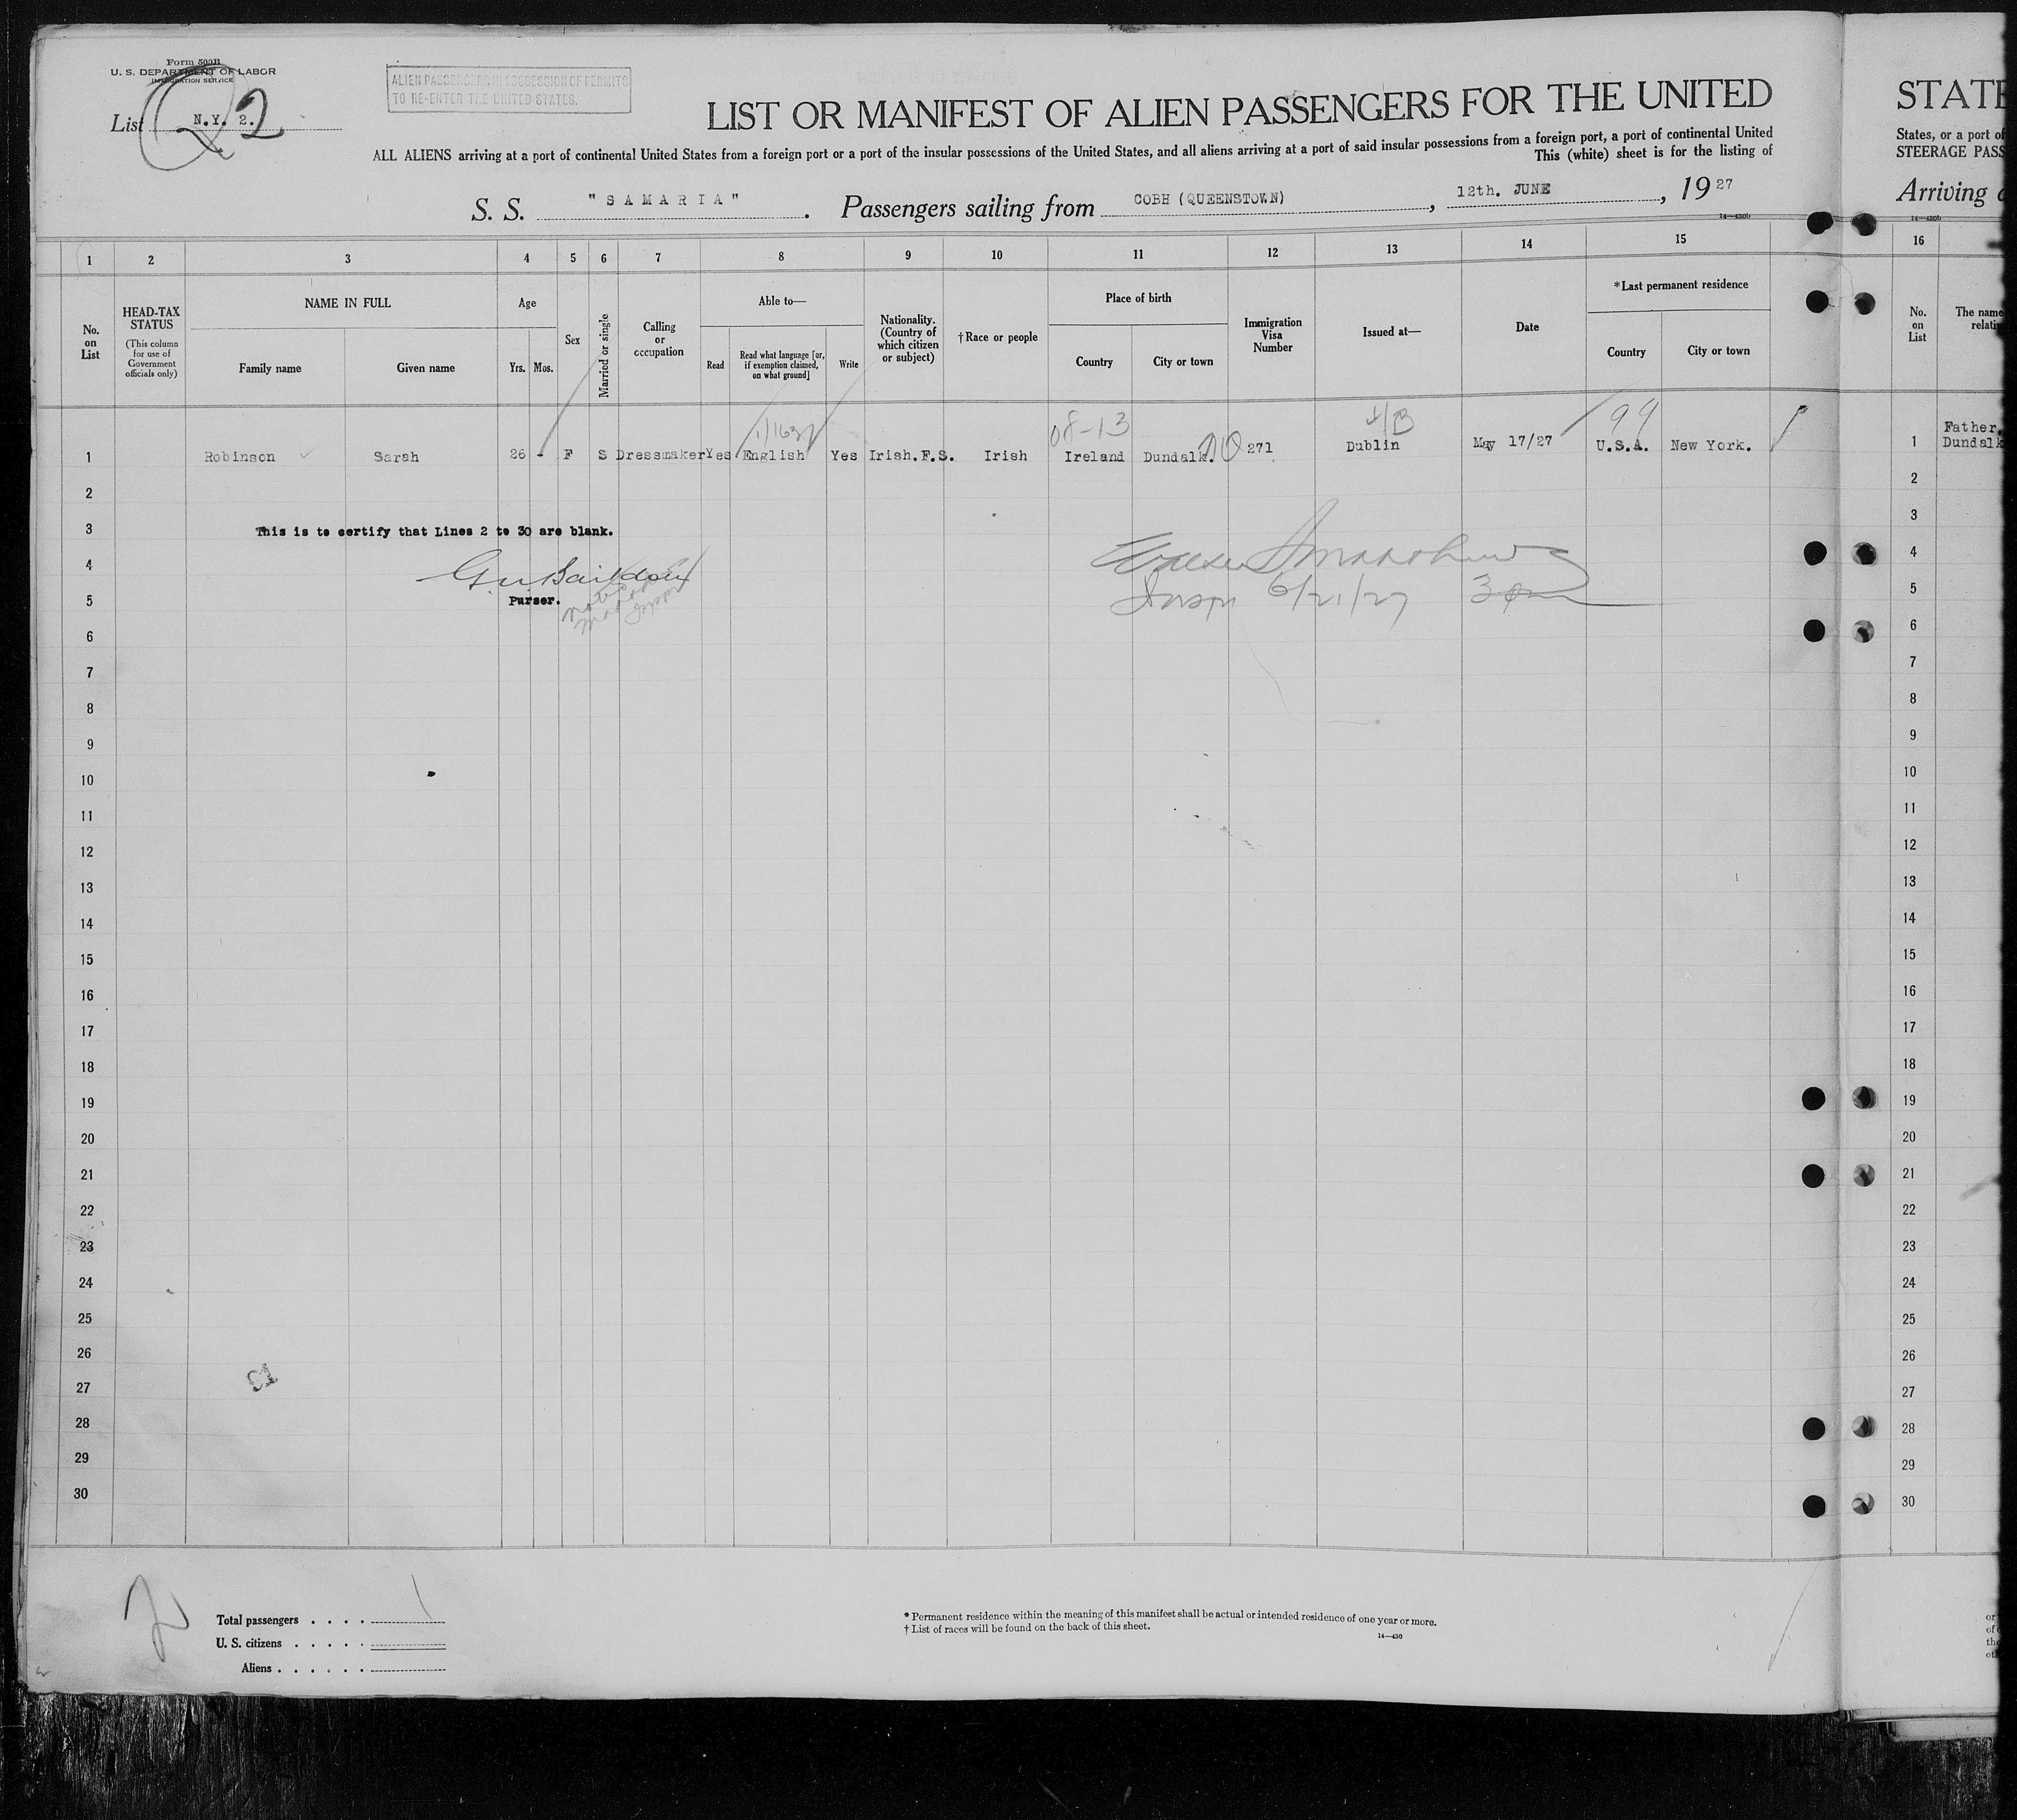 Form 500B
U. S. DEPARTMENT OF LABOR
IMMIGRATION SERVICE
List N.Y. 2. 2
ALIEN PASSENGERS IN POSSESSION OF PERMITS
TO RE-ENTER THE UNITED STATES.
LIST OR MANIFEST OF ALIEN PASSENGERS FOR THE UNITED
ALL ALIENS arriving at a port of continental United States from a foreign port or a port of the insular possessions of the United States, and all aliens arriving at a port of said insular possessions from a foreign port, a port of continental United
This (white) sheet is for the listing of
S. S. "SAMARIA". Passengers sailing from COBH (QUEENSTOWN), 12th. JUNE, 1927
14—430b
1 2 3 4 5 6 7 8 9 10 11 12 13 14 15
No. on List
HEAD-TAX STATUS
(This column for use of Government officials only)
NAME IN FULL
Family name Given name
Age
Yrs. Mos.
Sex
Married or single
Calling or occupation
Able to—
Read
Read what language [or, if exemption claimed, on what ground]
Write
Nationality. (Country of which citizen or subject)
†Race or people
Place of birth
Country City or town
Immigration Visa Number
Issued at—
Date
*Last permanent residence
Country City or town
08-13 99
1 Robinson Sarah 26 - F S Dressmaker Yes English Yes Irish.F.S. Irish Ireland Dundalk. 271 Dublin May 17/27 U.S.A. New York.
2
3 This is to certify that Lines 2 to 30 are blank.
4
5 Purser.
6/21/27 3
6
7
8
9
10
11
12
13
14
15
16
17
18
19
20
21
22
23
24
25
26
27
28
29
30
Total passengers . . . . 1
U. S. citizens . . . . .
Aliens . . . . . .
* Permanent residence within the meaning of this manifest shall be actual or intended residence of one year or more.
† List of races will be found on the back of this sheet.
14—430
STATE
States, or a port of
STEERAGE PASS
Arriving
14—430b
16
No. on List
The name
relati
1 Father,
Dundalk
2
3
4
5
6
7
8
9
10
11
12
13
14
15
16
17
18
19
20
21
22
23
24
25
26
27
28
29
30